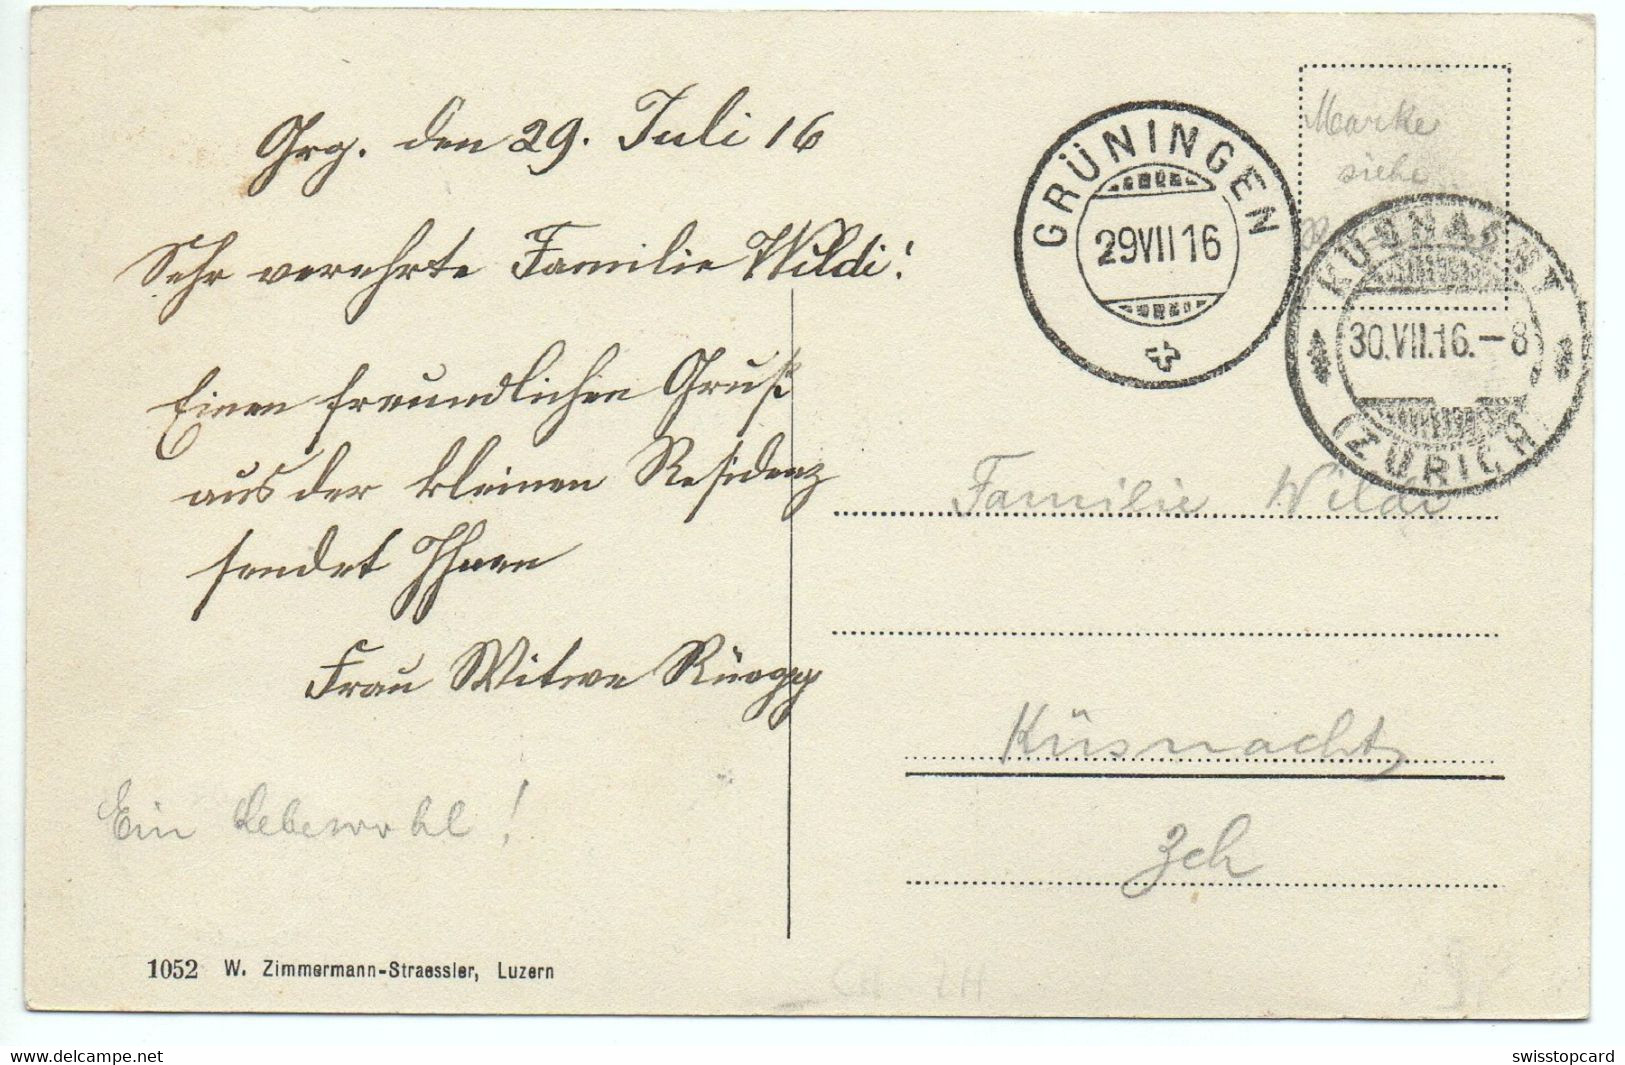 Grg. den 29. Juli 16
Sehr verehrte Familie Wildi!
Einen freundlichen Gruß
aus der kleinen Residenz
sendet Ihnen
Frau Witwe Rüegg
Ein Lebewohl!
1052 W. Zimmermann-Straessler, Luzern
GRÜNINGEN
29VII16
Marke
siehe
KÜSNACHT
30.VII.16.-8
(ZÜRICH)
Familie Wildi
Küsnacht
Zch
www.delcampe.net
swisstopcard